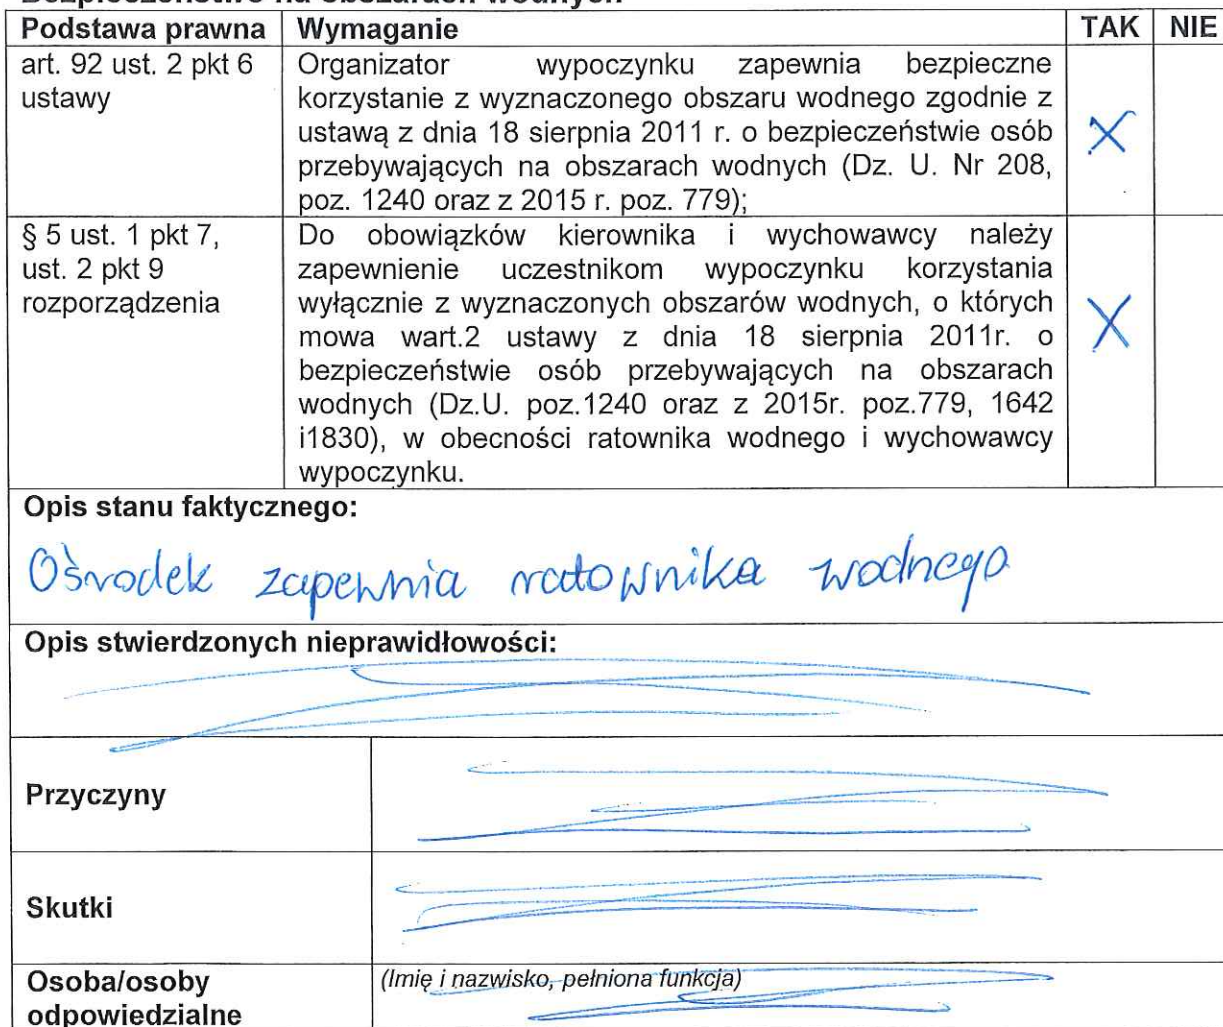 Bezpieczeństwo na obszarach wodnych
Podstawa prawna Wymaganie TAK NIE
art. 92 ust. 2 pkt 6
ustawy
Organizator wypoczynku zapewnia bezpieczne
korzystanie z wyznaczonego obszaru wodnego zgodnie z
ustawą z dnia 18 sierpnia 2011 r. o bezpieczeństwie osób
przebywających na obszarach wodnych (Dz. U. Nr 208,
poz. 1240 oraz z 2015 r. poz. 779);
X
§ 5 ust. 1 pkt 7,
ust. 2 pkt 9
rozporządzenia
Do obowiązków kierownika i wychowawcy należy
zapewnienie uczestnikom wypoczynku korzystania
wyłącznie z wyznaczonych obszarów wodnych, o których
mowa wart.2 ustawy z dnia 18 sierpnia 2011r. o
bezpieczeństwie osób przebywających na obszarach
wodnych (Dz.U. poz.1240 oraz z 2015r. poz.779, 1642
i1830), w obecności ratownika wodnego i wychowawcy
wypoczynku.
X
Opis stanu faktycznego:
Ośrodek zapewnia ratownika wodnego
Opis stwierdzonych nieprawidłowości:
Przyczyny
Skutki
Osoba/osoby
odpowiedzialne
(Imię i nazwisko, pełniona funkcja)